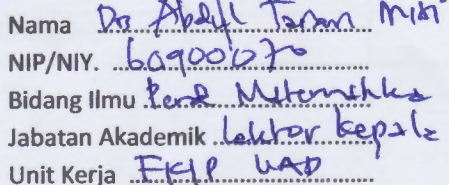 Nama Drs Abdul Taram MSi
NIP/NIY. 60900070
Bidang Ilmu Pend Matematika
Jabatan Akademik Lektor Kepala
Unit Kerja FKIP UAD